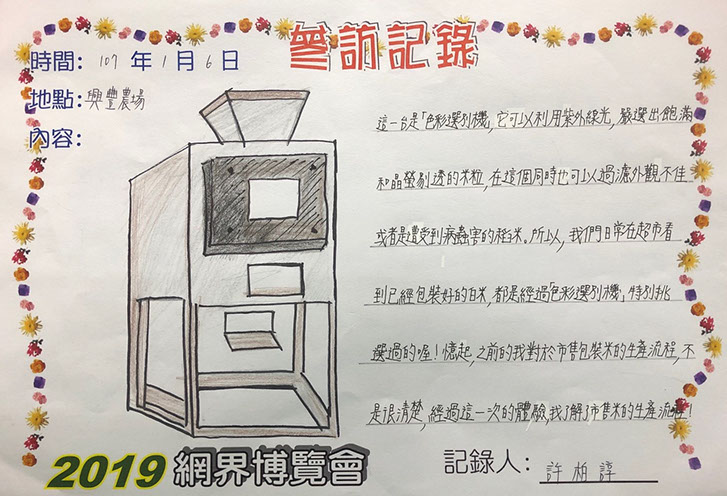 參訪記錄
時間: 107 年 1 月 6 日
地點: 興豐農場
內容:
這一台是「色彩選別機,它可以利用紫外線光,嚴選出飽滿
和晶瑩剔透的米粒,在這個同時也可以過濾外觀不佳
或者是遭受到病蟲害的稻米。所以,我們日常在超市看
到已經包裝好的白米,都是經過色彩選別機,特別挑
選過的喔!憶起,之前的我對於市售包裝米的生產流程,不
是很清楚,經過這一次的體驗,我了解了市售米的生產流程!
2019 網界博覽會
記錄人: 許柏諄